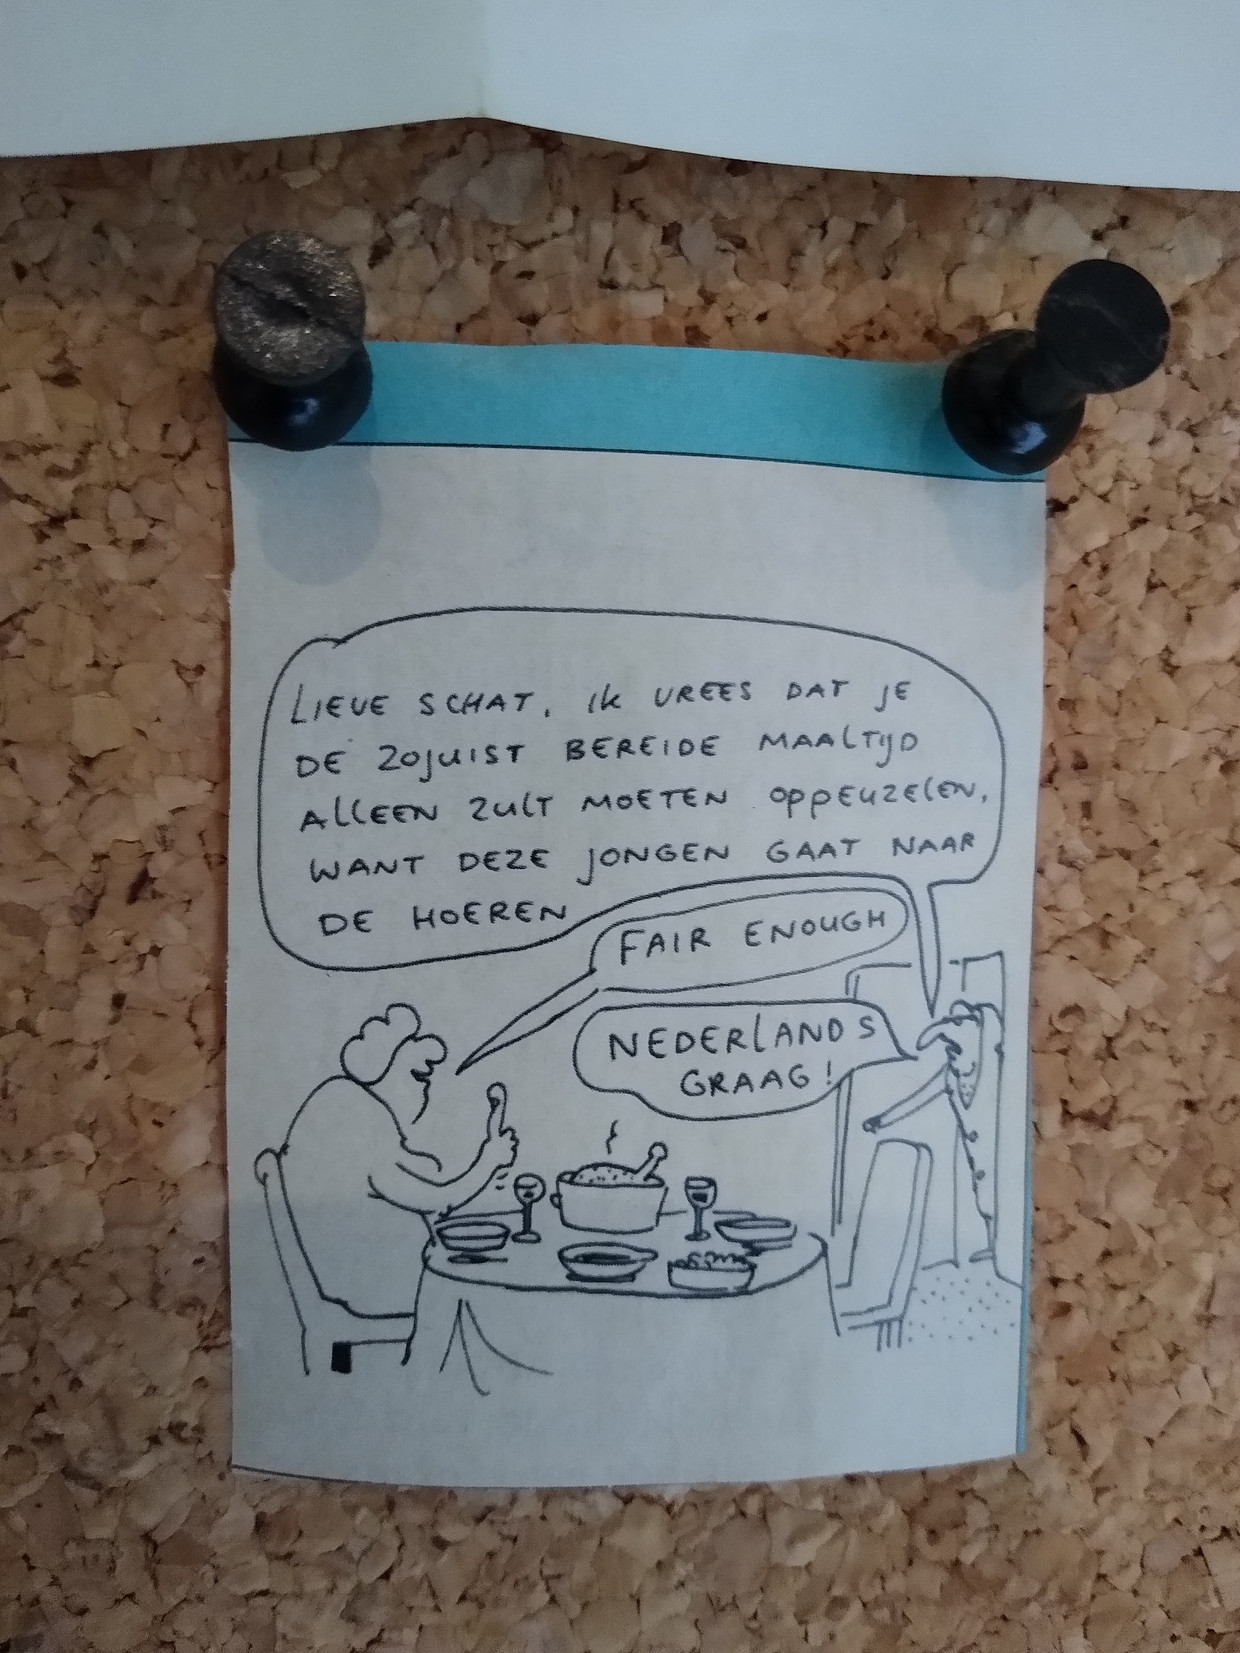 LIEVE SCHAT, IK VREES DAT JE
DE ZOJUIST BEREIDE MAALTIJD
ALLEEN ZULT MOETEN OPPEUZELEN,
WANT DEZE JONGEN GAAT NAAR
DE HOEREN
FAIR ENOUGH
NEDERLANDS
GRAAG!